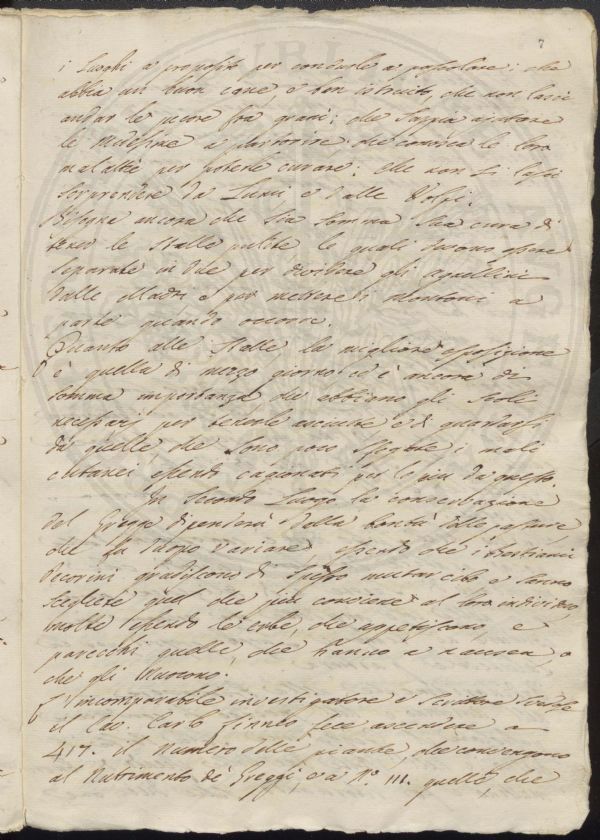 7
i luoghi a proposito per condurle a pascolare; che
abbia un buon cane, e ben istruito, che non lasci
andar le pecore fra grani; che sappia ajutare
le medesime a partorire che conosca le loro
malattie per poterle curare. che non si lasci
sorprendere da Lupi e dalle Volpi.
Bisogna ancora che sia somma sua cura di
tener le stalle pulite le quali devono essere
separate in due per dividere gli agnellini
dalle Madri e per mettere i montoni a
parte quando occorre.
Quanto alle Stalle la migliore esposizione
è quella di mezzo giorno ed è ancora di
somma importanza che abbiano gli scoli
necessarj per tenerle asciutte e di guardarsi
da quelle che sono poco sfogate i mali
cutanei essendo cagionati per lo più da questo.
In secondo luogo la conservazione
del Gregge dipenderà dalla bontà delle pasture,
che fa duopo variare essendo che i bestiami
pecorini gradiscono di spesso mutar cibo e sanno
scegliere quel che più conviene al loro individuo,
molte essendo le erbe, che appetiscono, e
parecchi quelle, che hanno a nausea, o
che gli nuocono.
L'incomparabile investigatore e scrittore
il Cav. Carlo Linneo fece ascendere a
417. il numero delle piante, che convengono
al Nutrimento de' Greggi, e a N.º 111. quelle, che